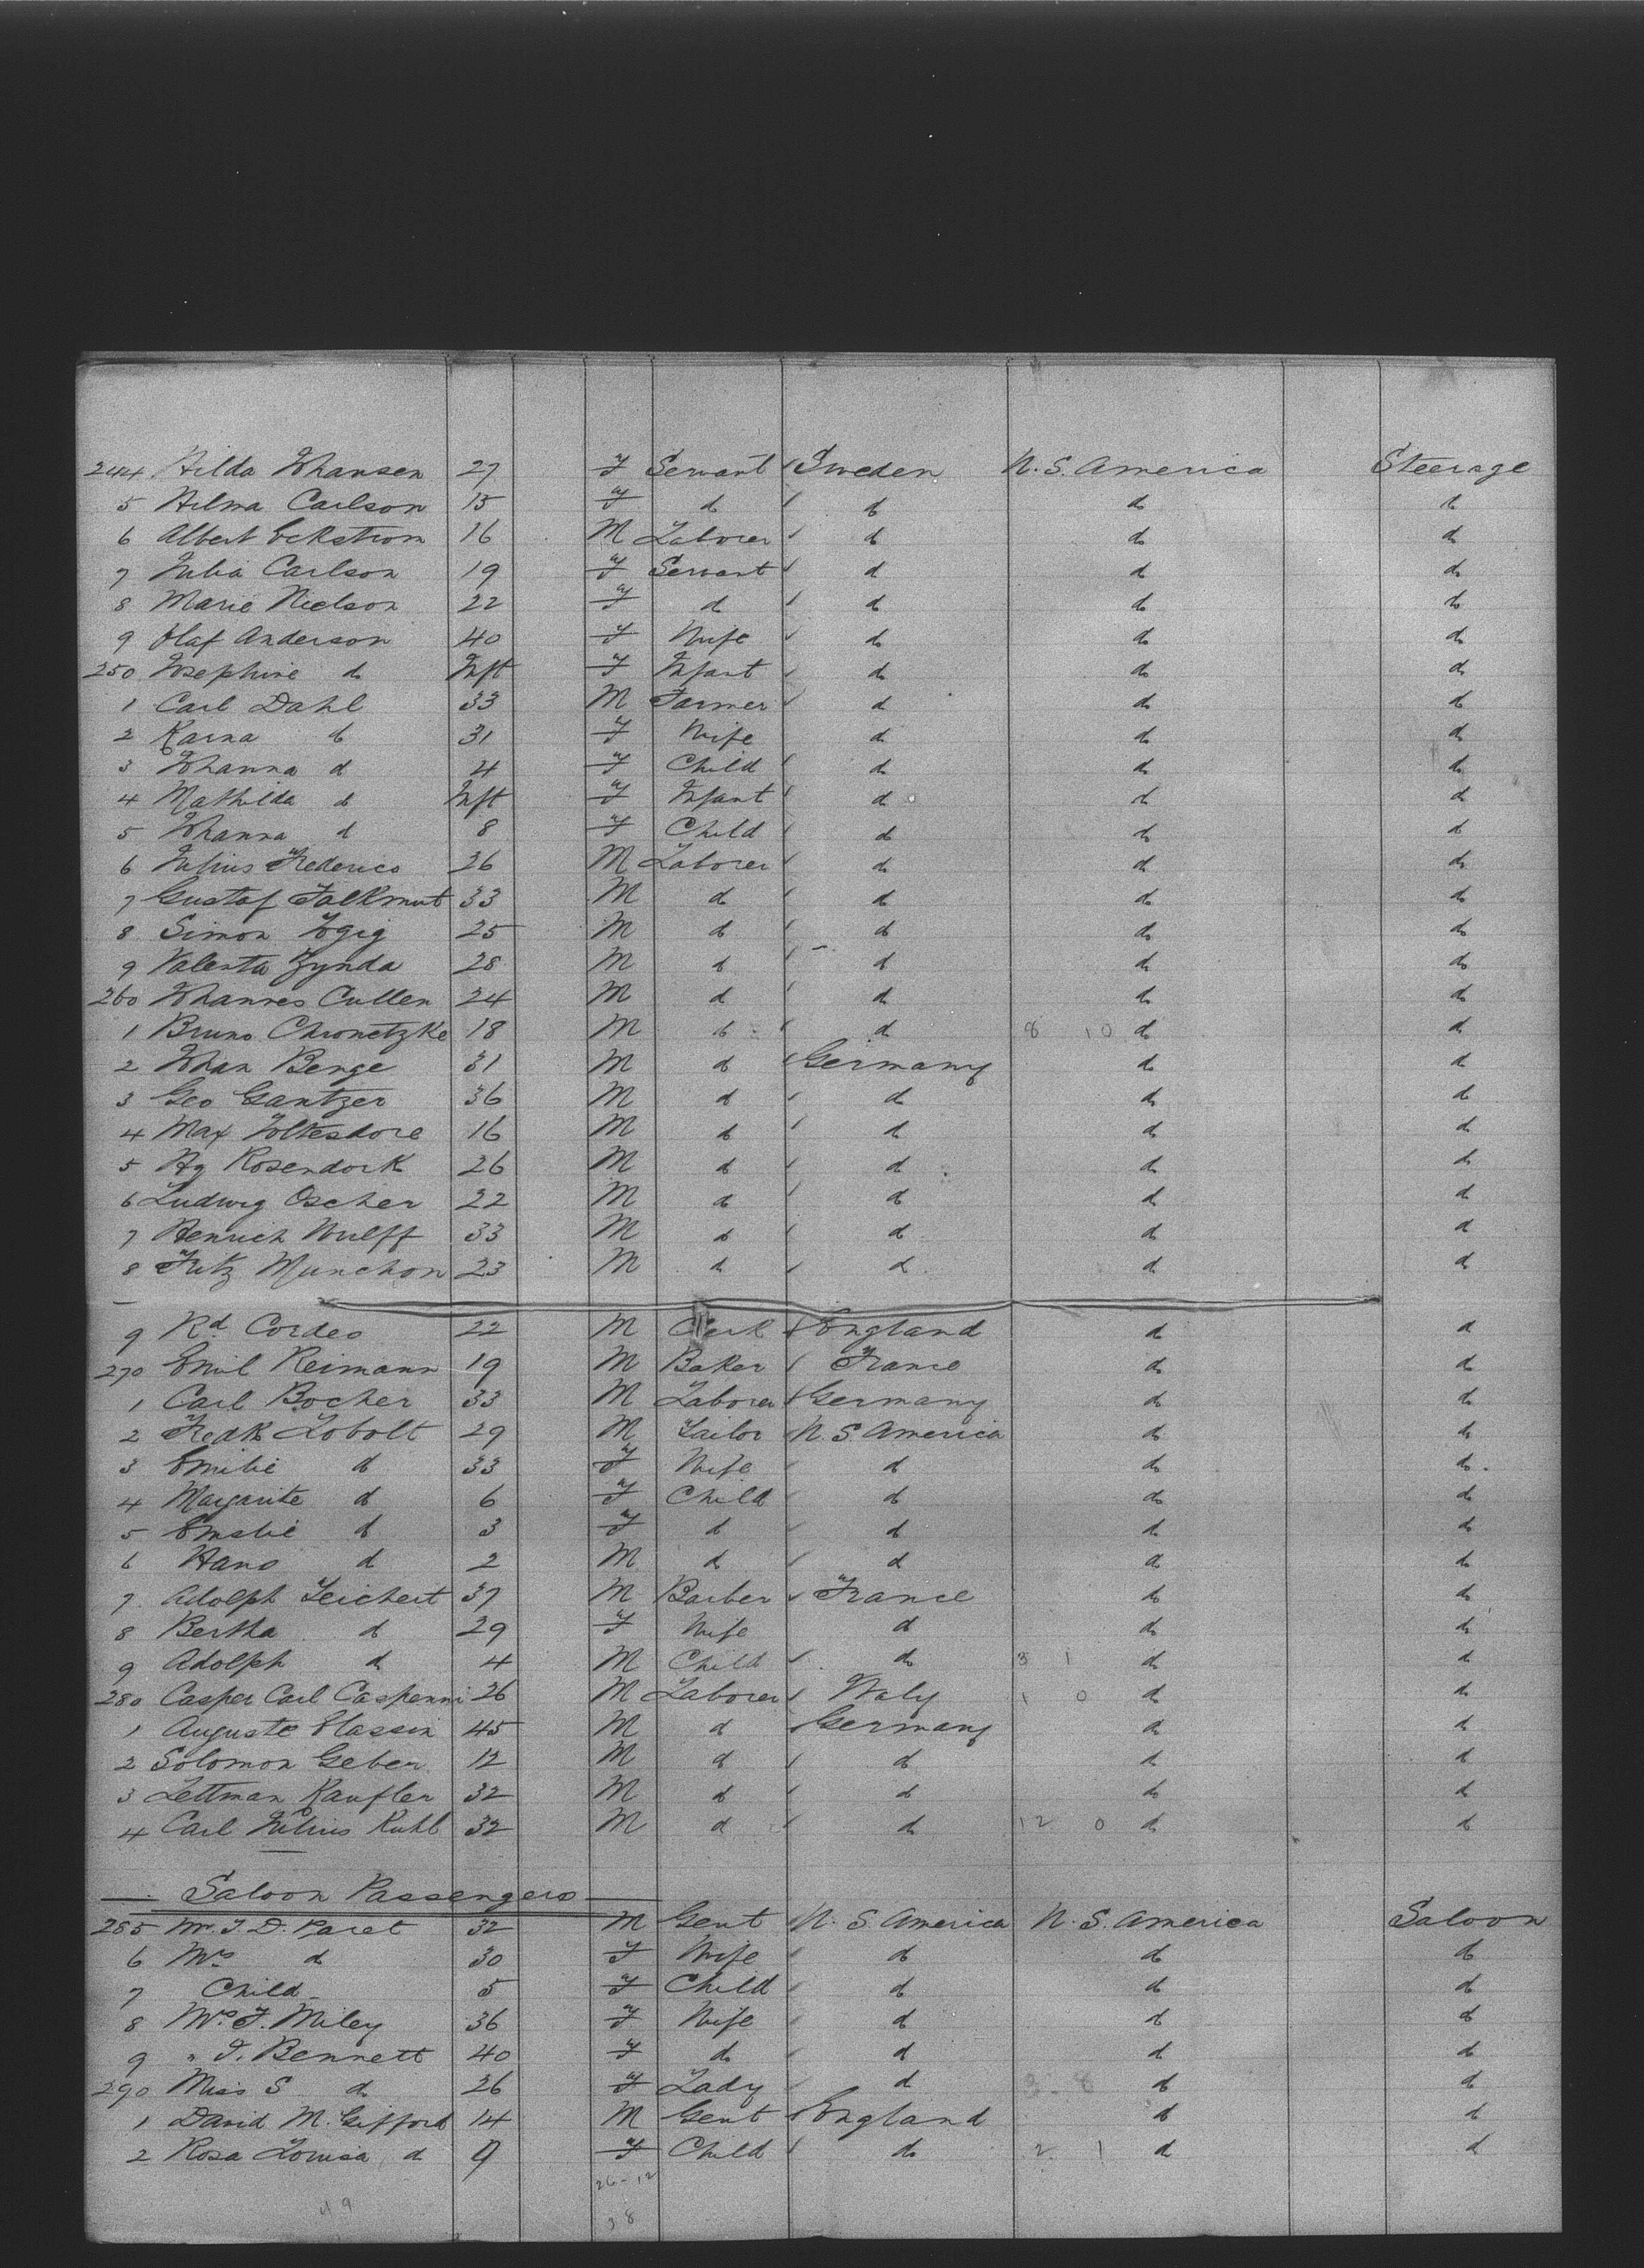 244 Hilda Johansen 27 F Servant Sweden N. S. America Steerage
5 Hilma Carlson 15 F d d d d
6 Albert Eckstrom 16 M Laborer d d d
7 Julia Carlson 19 F Servant d d d
8 Marie Nielson 22 F d d d d
9 Olaf Anderson 40 F Wife d d d
250 Josephine d Inft F Infant d d d
1 Carl Dahl 33 M Farmer d d d
2 Karna d 31 F Wife d d d
3 Johanna d 4 F Child d d d
4 Mathilda d Inft F Infant d d d
5 Johanna d 8 F Child d d d
6 Julius Frederico 26 M Laborer d d d
7 Gustaf 33 M d d d d
8 Simon 25 M d d d d
9 Valenta Zynda 28 M d d d d
260 Johannes Cullen 24 M d d d d
1 Bruno Chronetzke 18 M d d 8 10 d d
2 Johan Benge 31 M d Germany d d
3 Geo Gantzer 36 M d d d d
4 Max 16 M d d d d
5 Hy Rosendork 26 M d d d d
6 Ludwig Oscher 22 M d d d d
7 Henrich Wulff 33 M d d d d
8 Fritz Munchon 23 M d d d d
9 Rd Cordeo 22 M Clerk England d d
270 Emil Reimann 19 M Baker France d d
1 Carl Bocher 33 M Laborer Germany d d
2 Fredk Lobolt 29 M Tailor N. S. America d d
3 Emilie d 33 F Wife d d d
4 Margarite d 6 F Child d d d
5 Emelie d 3 F d d d d
6 Hano d 2 M d d d d
7 Adolph Teichert 37 M Barber France d d
8 Bertha d 29 F Wife d d d
9 Adolph d 4 M Child d 3 1 d d
280 Casper Carl Caspenni 26 M Laborer Italy 1 0 d d
1 Auguste Elassin 45 M d Germany d d
2 Solomon Geber 12 M d d d d
3 Lettman Kaufler 32 M d d d d
4 Carl Julius Kuhl 32 M d d 12 0 d d
Saloon Passengers
285 Mr. J. D. Paret 32 M Gent N. S. America N. S. America Saloon
6 Mrs d 30 F Wife d d d
7 Child 5 F Child d d d
8 Mrs. F. Miley 36 F Wife d d d
9 " J. Bennett 40 F d d d d
290 Miss S d 26 F Lady d 3 - 8 d d
1 David M. Gifford 14 M Gent England d d
2 Rosa Louisa d 9 F Child d 2 1 d d
26-12
49 38